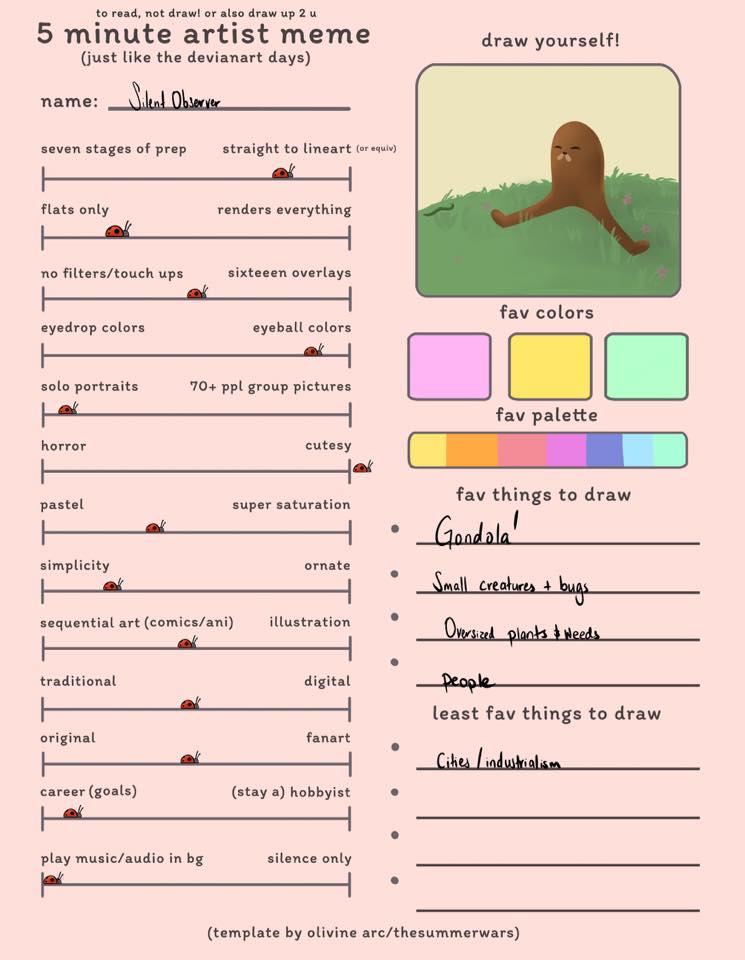 to read, not draw! or also draw up 2 u
5 minute artist meme
(just like the devianart days)
name: Silent Observer
seven stages of prep straight to lineart (or equiv)
flats only renders everything
no filters/touch ups sixteeen overlays
eyedrop colors eyeball colors
solo portraits 70+ ppl group pictures
horror cutesy
pastel super saturation
simplicity ornate
sequential art (comics/ani) illustration
traditional digital
original fanart
career (goals) (stay a) hobbyist
play music/audio in bg silence only
draw yourself!
fav colors
fav palette
fav things to draw
Gondola!
Small creatures + bugs
Oversized plants & weeds
People
least fav things to draw
Cities / industrialism
(template by olivine arc/thesummerwars)